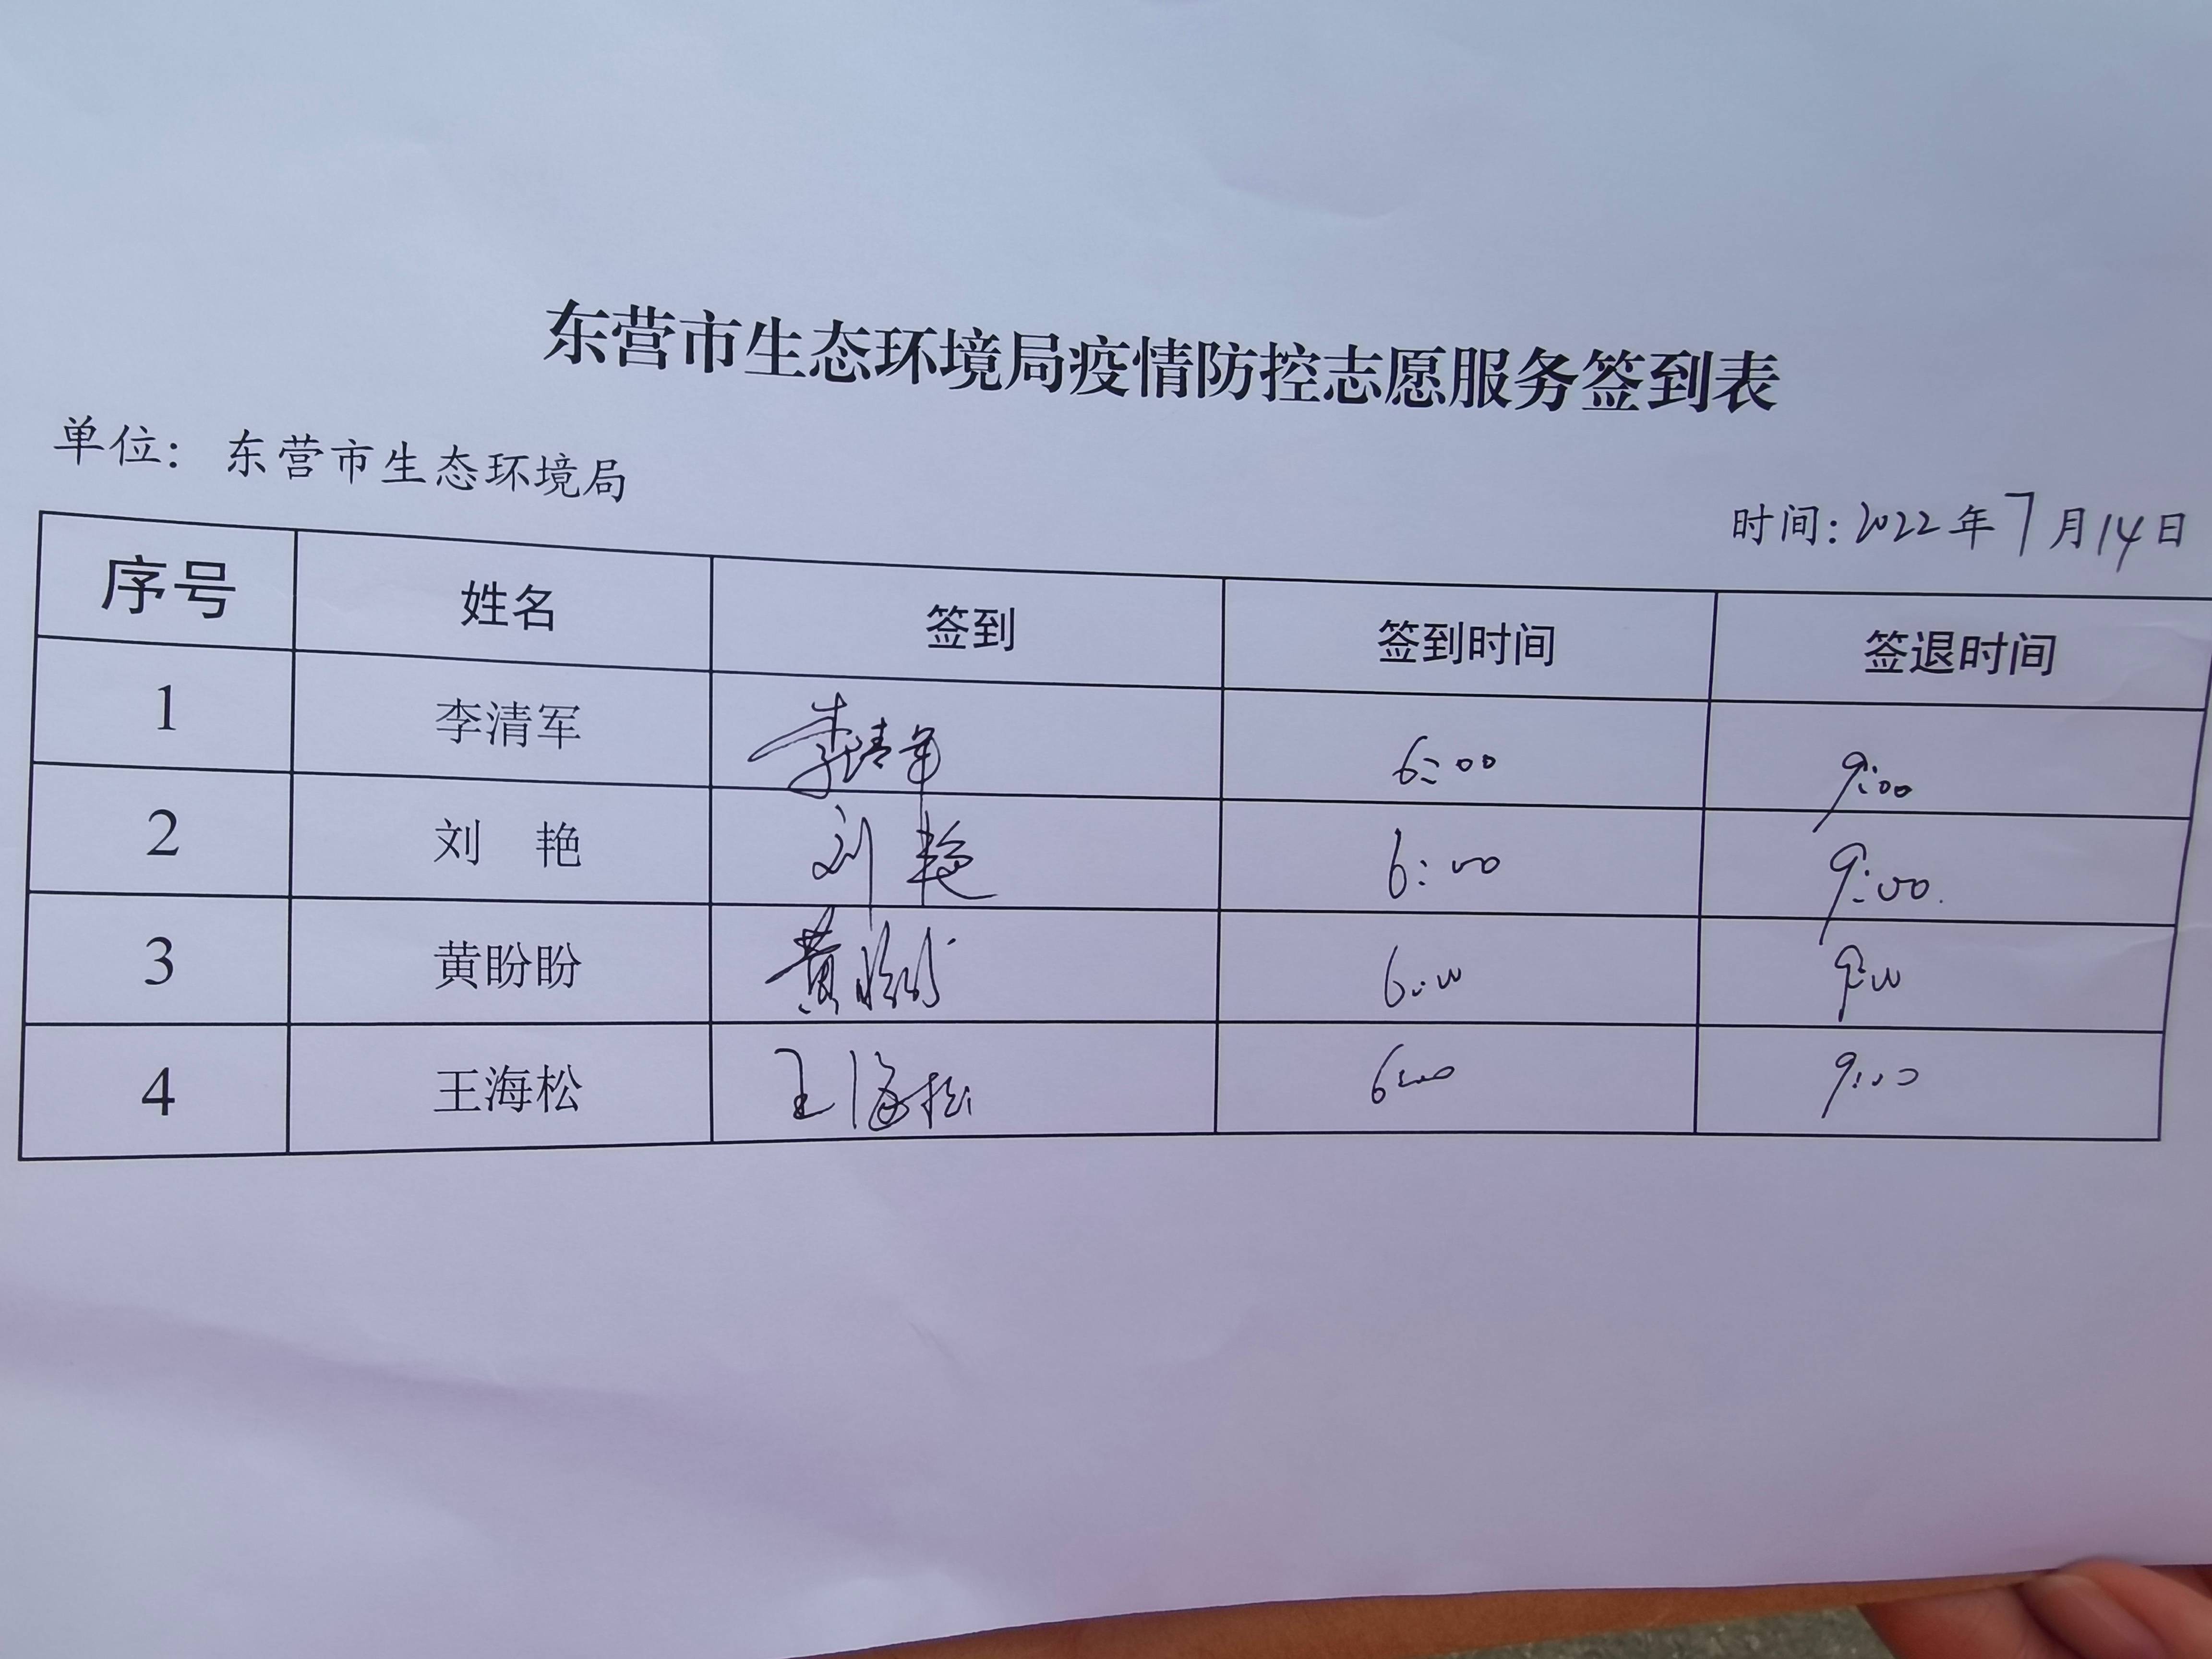 东营市生态环境局疫情防控志愿服务签到表
单位：东营市生态环境局
时间：2022年7月14日
序号 姓名 签到 签到时间 签退时间
1 李清军 李清军 6:00 9:00
2 刘 艳 刘艳 6:00 9:00.
3 黄盼盼 黄盼盼 6:00 9:00
4 王海松 王海松 6:00 9:00